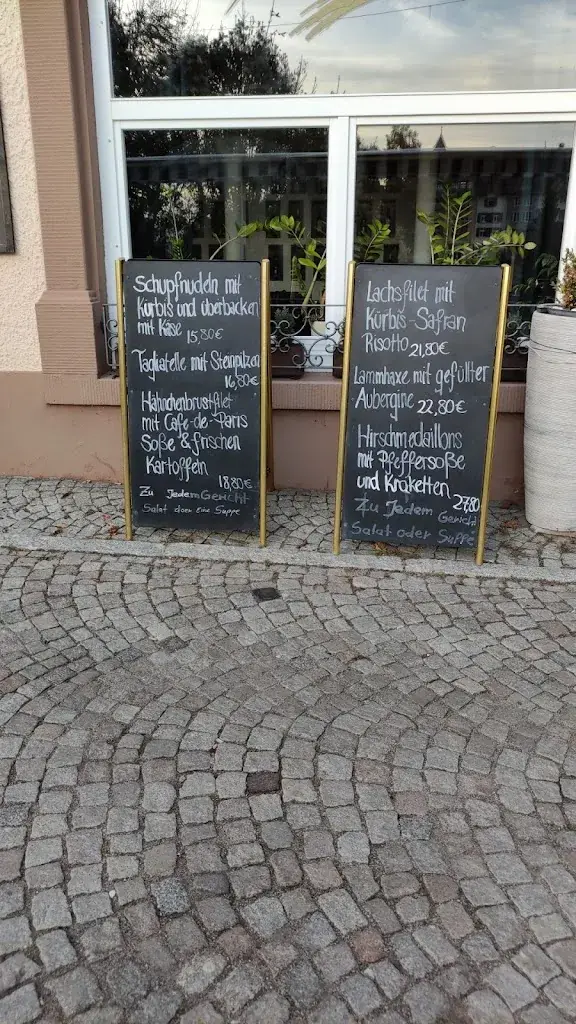 Schupfnudeln mit
Kürbis und überbacken
mit Käse 15,80€
Tagliatelle mit Steinpilzen
16,80€
Hähnchenbrustfilet
mit Cafe-de-Paris
Soße & frischen
Kartoffeln
18,80€
Zu Jedem Gericht
Salat oder Eine Suppe
Lachsfilet mit
Kürbis-Safran
Risotto 21,80€
Lammhaxe mit gefüllter
Aubergine 22,80€
Hirschmedaillons
mit Pfeffersoße
und Kroketten 27,80
Zu Jedem Gericht
Salat oder Suppe